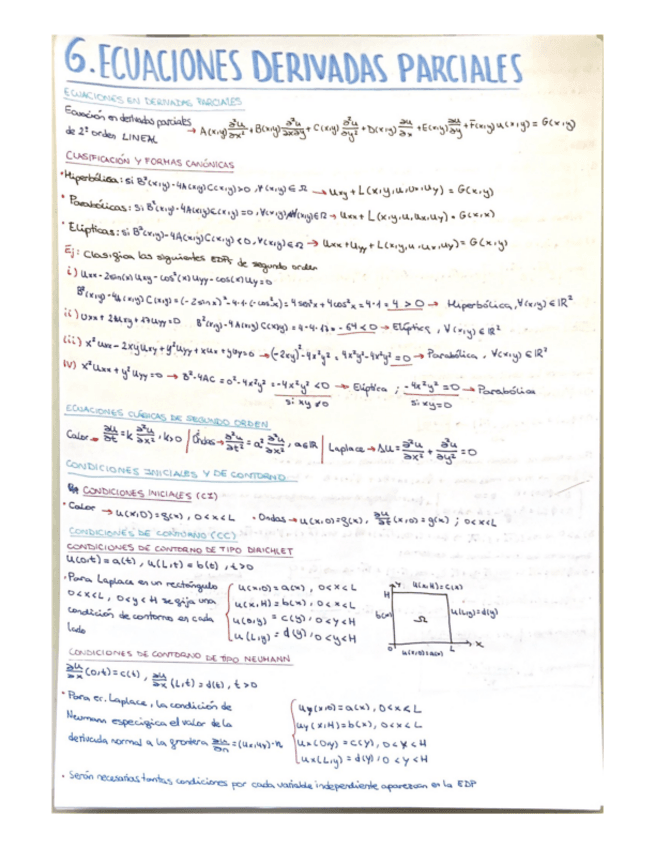 6. ECUACIONES DERIVADAS PARCIALES
ECUACIONES EN DERIVADAS PARCIALES
Ecuación en derivadas parciales
de 2º orden LINEAL → A(x,y) ∂²u/∂x² + B(x,y) ∂²u/∂x∂y + C(x,y) ∂²u/∂y² + D(x,y) ∂u/∂x + E(x,y) ∂u/∂y + F(x,y) u(x,y) = G(x,y)
CLASIFICACIÓN Y FORMAS CANÓNICAS
· Hiperbólica: si B²(x,y)-4A(x,y)C(x,y)>0, ∀(x,y)∈Ω → Uxy + L(x,y,u,ux,uy) = G(x,y)
· Parabólicas: si B²(x,y)-4A(x,y)C(x,y)=0, ∀(x,y)∈Ω → Uxx + L(x,y,u,ux,uy) = G(x,x)
· Elípticas: si B²(x,y)-4A(x,y)C(x,y)<0, ∀(x,y)∈Ω → Uxx + Uyy + L(x,y,u,ux,uy) = G(x,y)
Ej: Clasifica las siguientes EDPs de segundo orden
i) Uxx - 2sin(x)Uxy - cos²(x)Uyy - cos(x)Uy = 0
B²(x,y)-4A(x,y)C(x,y) = (-2sinx)²-4·1·(-cos²x) = 4sin²x + 4cos²x = 4·1 = 4 > 0 → Hiperbólica, ∀(x,y)∈ℝ²
ii) Uxx + 2Uxy + 17Uyy = 0 B²(x,y)-4A(x,y)C(x,y) = 4-4·17 = -64 < 0 → Elíptica, ∀(x,y)∈ℝ²
iii) x²Uxx - 2xyUxy + y²Uyy + xUx + yUy = 0 → (-2xy)² - 4x²y² = 4x²y² - 4x²y² = 0 → Parabólica, ∀(x,y)∈ℝ²
iv) x²Uxx + y²Uyy = 0 → B²-4AC = 0² - 4x²y² = -4x²y² < 0 → Elíptica ; -4x²y² = 0 → Parabólica
si xy ≠ 0 si xy = 0
ECUACIONES CLÁSICAS DE SEGUNDO ORDEN
Calor → ∂u/∂t = k ∂²u/∂x², k>0 | Ondas → ∂²u/∂t² = a² ∂²u/∂x², a∈ℝ | Laplace → Δu = ∂²u/∂x² + ∂²u/∂y² = 0
CONDICIONES INICIALES Y DE CONTORNO
CONDICIONES INICIALES (CI)
· Calor → u(x,0) = f(x), 0<x<L · Ondas → u(x,0) = f(x), ∂u/∂t (x,0) = g(x) ; 0<x<L
CONDICIONES DE CONTORNO (CC)
CONDICIONES DE CONTORNO DE TIPO DIRICHLET
u(0,t) = a(t), u(L,t) = b(t), t>0
· Para Laplace en un rectángulo
0<x<L, 0<y<H se fija una
condición de contorno en cada
lado
u(x,0) = a(x), 0<x<L
u(x,H) = b(x), 0<x<L
u(0,y) = c(y), 0<y<H
u(L,y) = d(y), 0<y<H
Y u(x,H)=c(x)
H
b(x) Ω u(L,y)=d(y)
0 u(x,0)=a(x) L x
CONDICIONES DE CONTORNO DE TIPO NEUMANN
∂u/∂x (0,t) = c(t), ∂u/∂x (L,t) = d(t), t>0
· Para ec. Laplace, la condición de
Neumann especifica el valor de la
derivada normal a la frontera ∂u/∂n = (ux,uy)·n
uy(x,0) = a(x), 0<x<L
uy(x,H) = b(x), 0<x<L
ux(0,y) = c(y), 0<y<H
ux(L,y) = d(y), 0<y<H
· Serán necesarias tantas condiciones por cada variable independiente aparezcan en la EDP